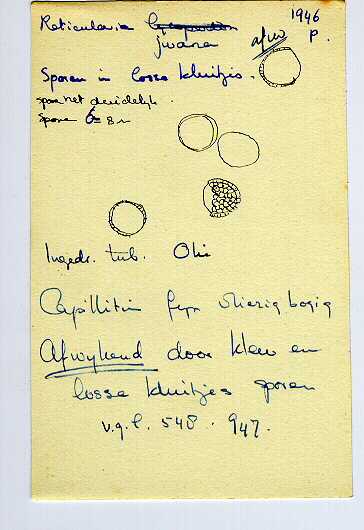 Reticularia Lycoperdon 1946
jurana afw P.
Sporen in losse kluitjes.
spore net duidelijk.
Spore 6- 8 µ
Ingedr. tub. Olie
Capillitium fijn vliezig bosig
Afwykend door kleur en
losse kluitjes sporen
v.g.l. 548. 947.